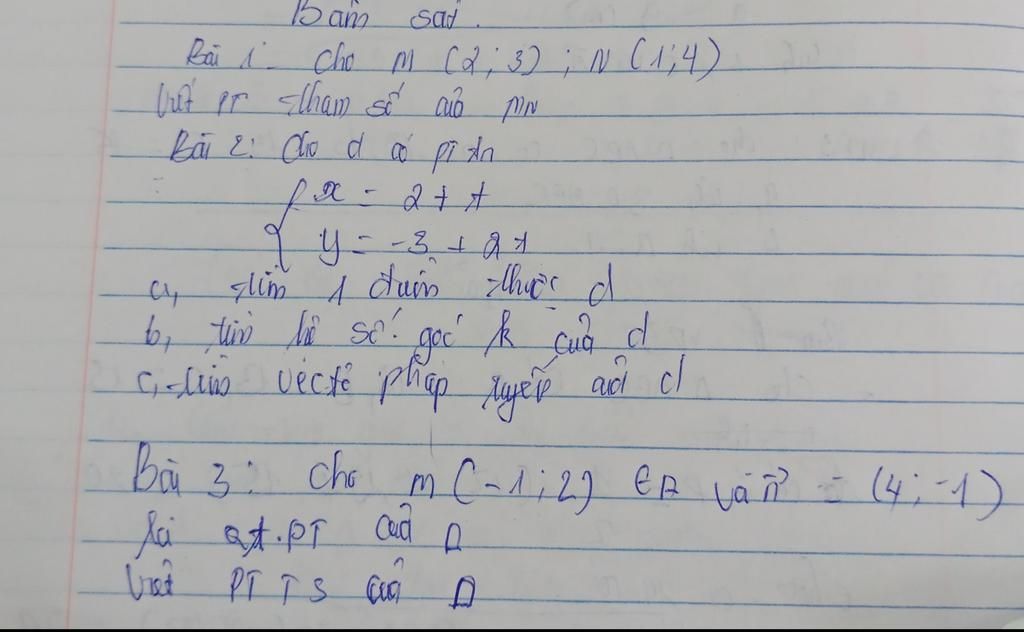 Bám sát.
Bài 1: Cho M (2; 3) ; N (1; 4)
Viết PT tham số của MN
Bài 2: Cho d có pt
{ x = 2 + t
y = -3 + 2t
a, tìm 1 điểm thuộc d
b, tìm hệ số góc k của d
c, tìm véctơ pháp tuyến của d
Bài 3: Cho M (-1; 2) ∈ Δ và n⃗ = (4; -1)
PT của Δ
Viết PT TS của Δ